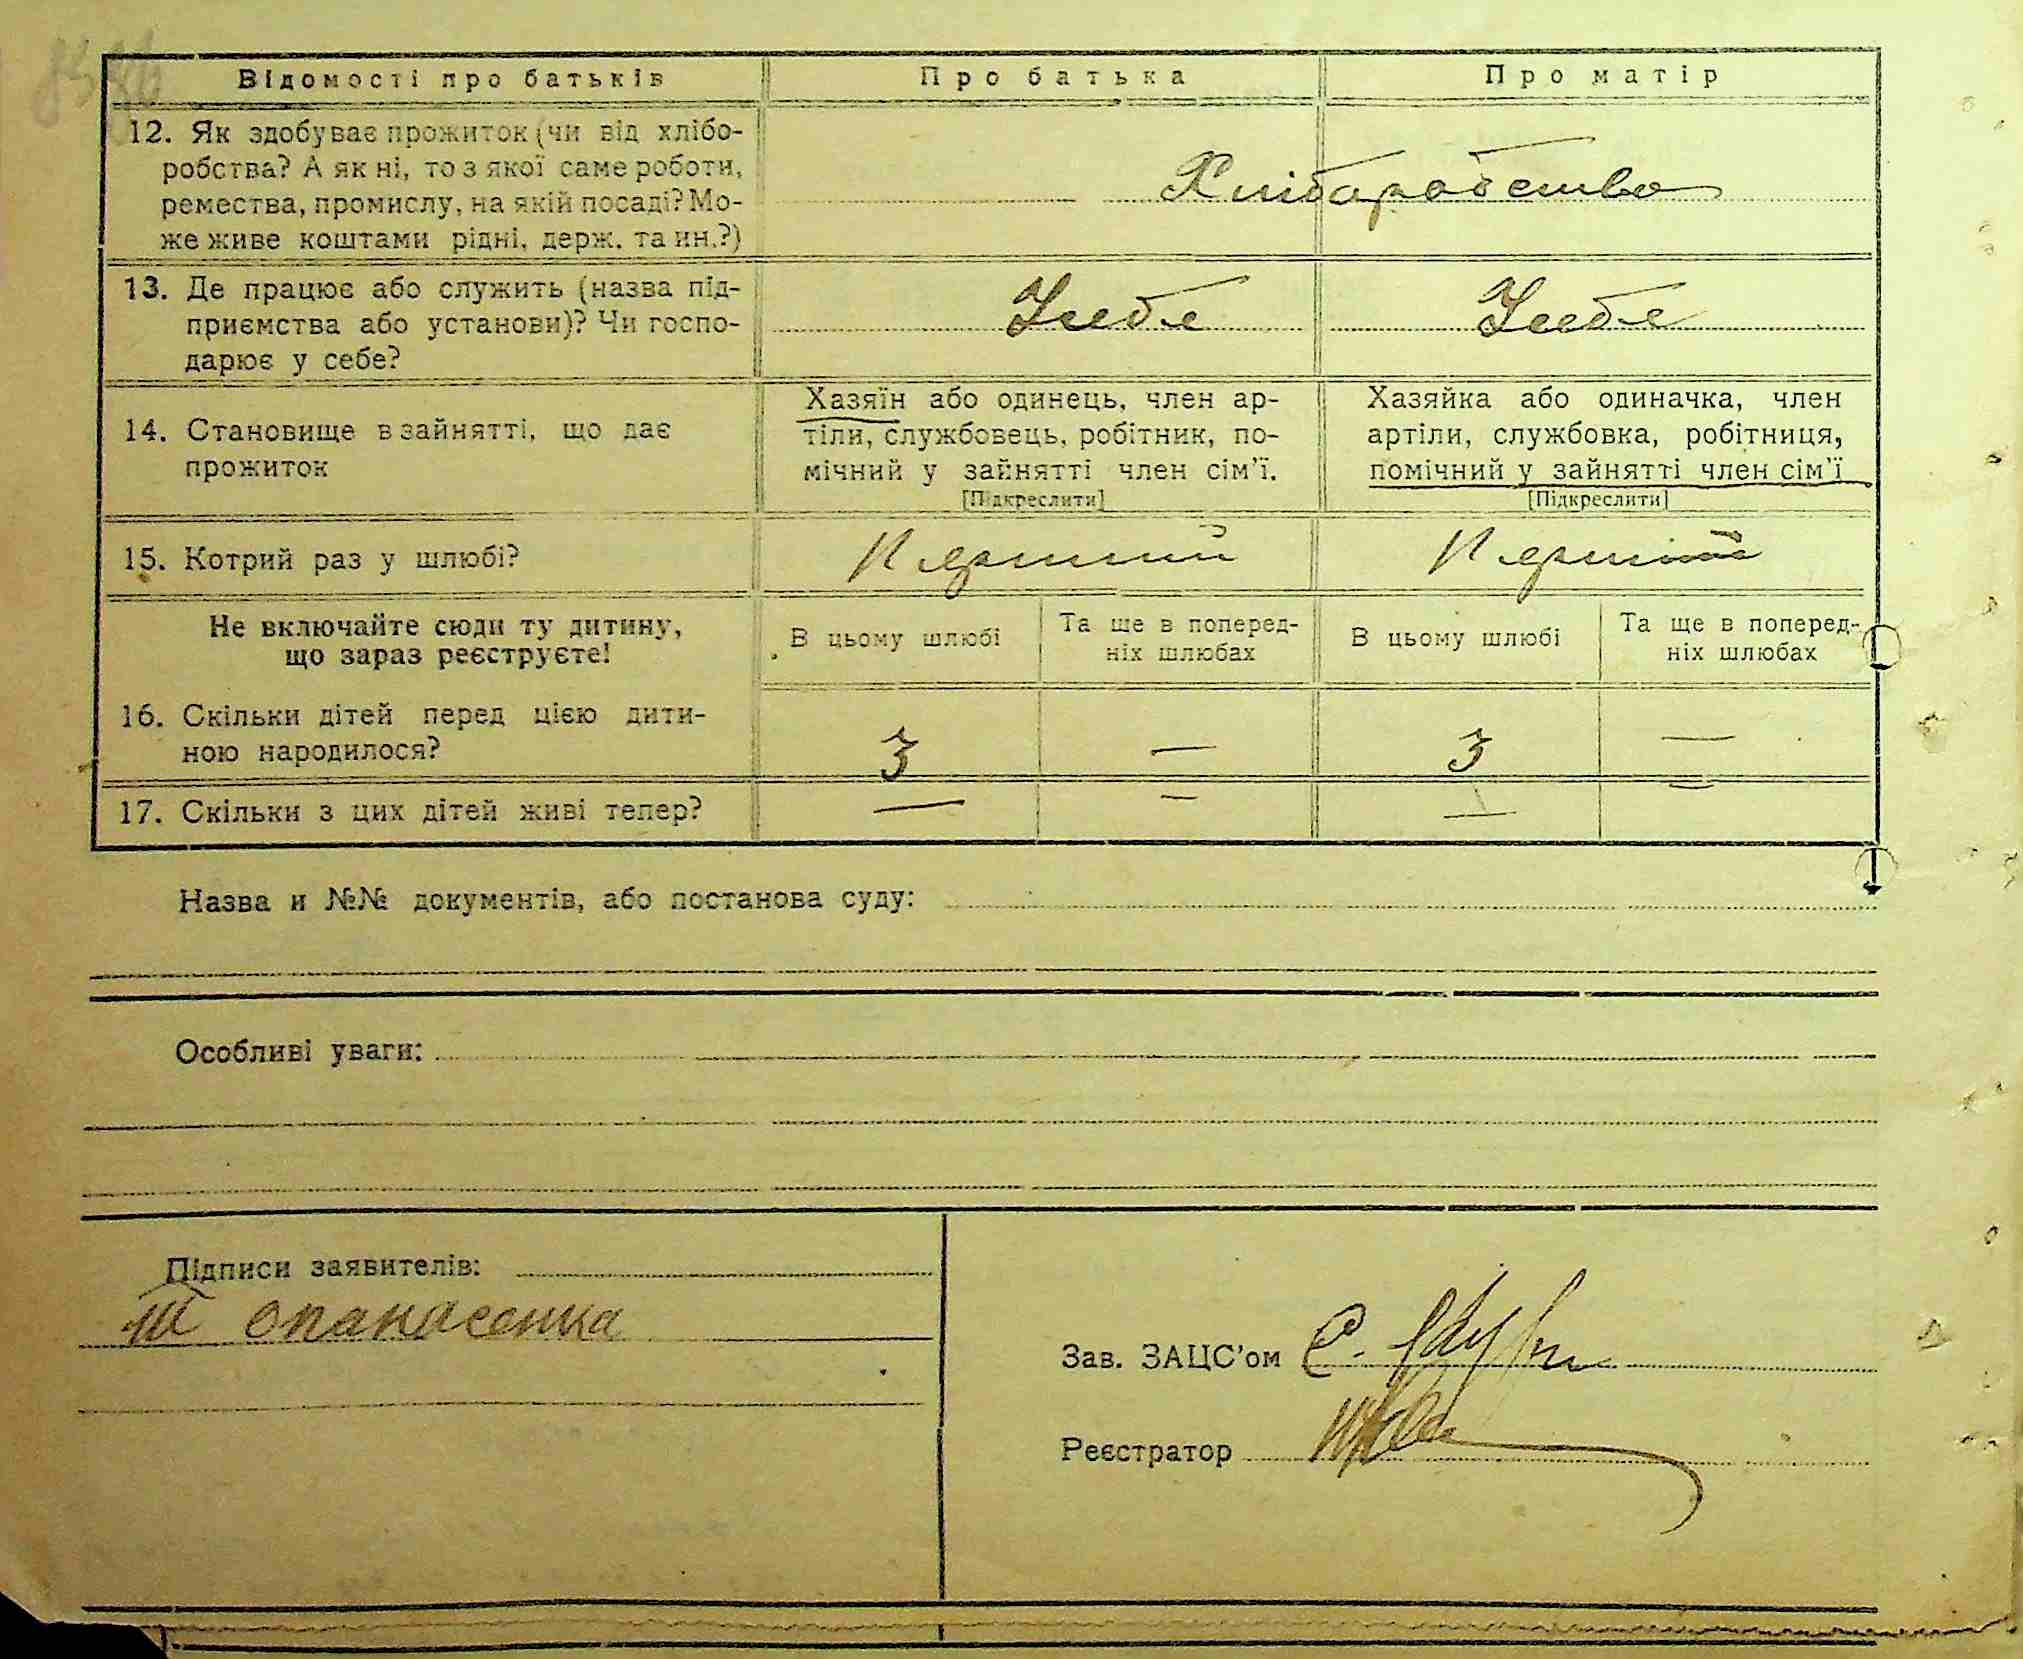 Відомості про батьків
Про батька
Про матір
12. Як здобуває прожиток (чи від хлібо-
робства? А як ні, то з якої саме роботи,
ремества, промислу, на якій посаді? Мо-
же живе коштами рідні, держ. та ин.?)
Хліборобство
13. Де працює або служить (назва під-
приємства або установи)? Чи госпо-
дарює у себе?
У себе
У себе
14. Становище в зайнятті, що дає
прожиток
Хазяїн або одинець, член ар-
тіли, службовець, робітник, по-
мічний у зайнятті член сім'ї.
[Підкреслити]
Хазяйка або одиначка, член
артіли, службовка, робітниця,
помічний у зайнятті член сім'ї
[Підкреслити]
15. Котрий раз у шлюбі?
Перший
Перший
Не включайте сюди ту дитину,
що зараз реєструєте!
В цьому шлюбі
Та ще в поперед-
ніх шлюбах
В цьому шлюбі
Та ще в поперед-
ніх шлюбах
16. Скільки дітей перед цією дити-
ною народилося?
3 — 3 —
17. Скільки з цих дітей живі тепер?
— — — —
Назва и №№ документів, або постанова суду:
Особливі уваги:
Підписи заявителів:
опанасенка
Зав. ЗАЦС'ом С.
Реєстратор